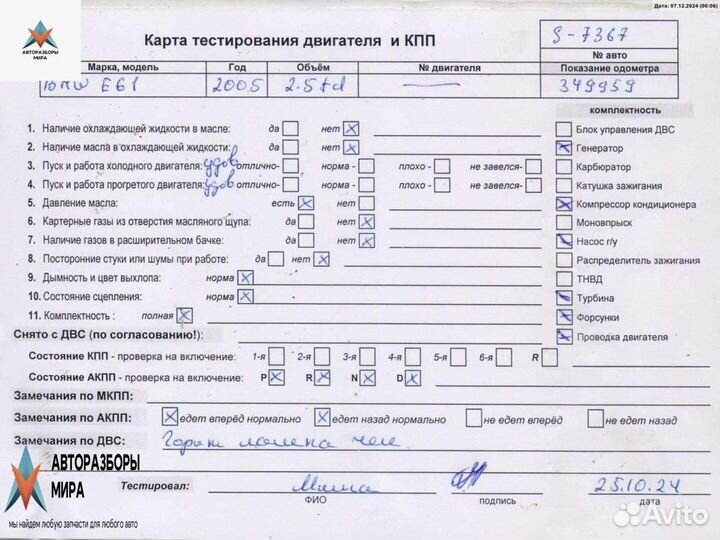 Дата: 07.12.2024 (00:06)
АВТОРАЗБОРЫ
МИРА
Карта тестирования двигателя и КПП
9-7367
№ авто
Марка, модель Год Объём № двигателя Показание одометра
BMW E61 2005 2.5td — 349959
комплектность
1. Наличие охлаждающей жидкости в масле: да нет
Блок управления ДВС
2. Наличие масла в охлаждающей жидкости: да нет
Генератор
3. Пуск и работа холодного двигателя: удов отлично- норма - плохо - не завелся-
Карбюратор
4. Пуск и работа прогретого двигателя: удов отлично- норма - плохо - не завелся-
Катушка зажигания
5. Давление масла: есть нет
Компрессор кондиционера
6. Картерные газы из отверстия масляного щупа: да нет
Моновпрыск
7. Наличие газов в расширительном бачке: да нет
Насос г/у
8. Посторонние стуки или шумы при работе: да нет
Распределитель зажигания
9. Дымность и цвет выхлопа: норма
ТНВД
10. Состояние сцепления: норма
Турбина
11. Комплектность : полная
Форсунки
Снято с ДВС (по согласованию!):
Проводка двигателя
Состояние КПП - проверка на включение: 1-я 2-я 3-я 4-я 5-я 6-я R
Состояние АКПП - проверка на включение: P R N D
Замечания по МКПП:
Замечания по АКПП: едет вперёд нормально едет назад нормально не едет вперёд не едет назад
Замечания по ДВС: Горит лампа чек.
АВТОРАЗБОРЫ
МИРА
Тестировал: 25.10.24
ФИО подпись дата
мы найдем любую запчасти для любого авто
Avito